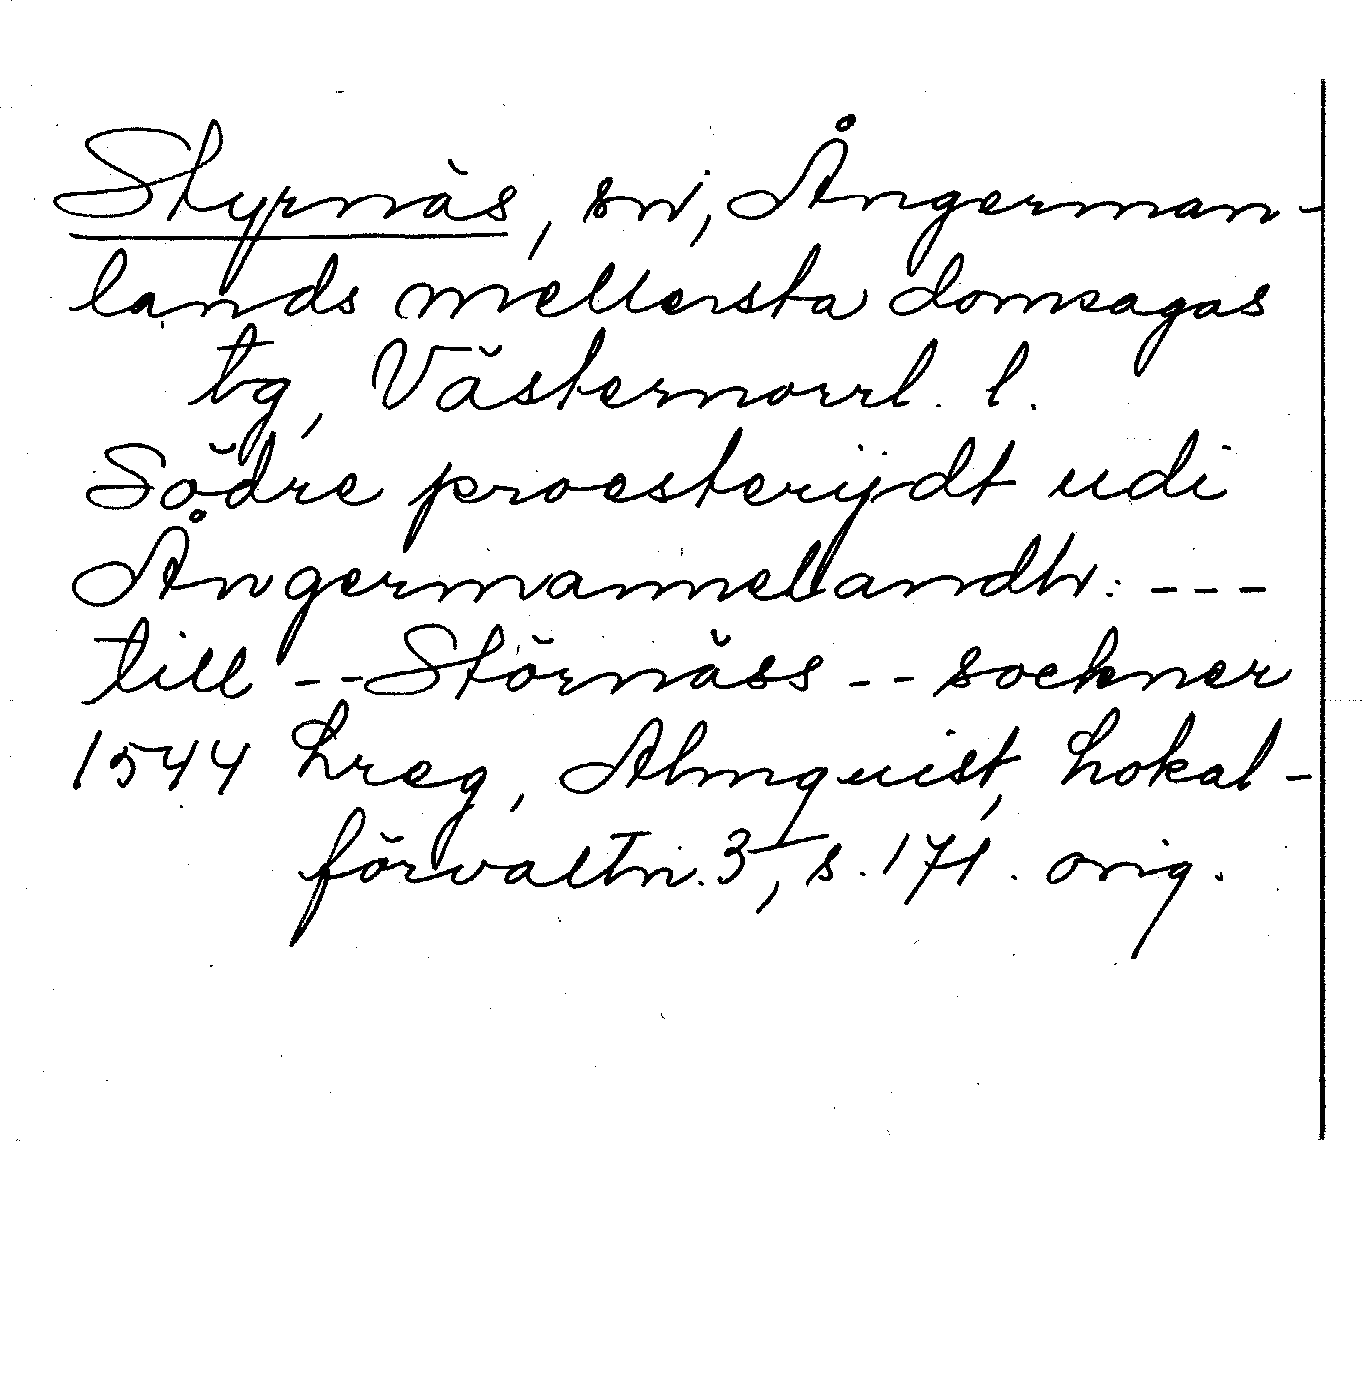 Styrnäs, sn, Ångerman-
lands mellersta domsagas
tg, Västernorrl. l.
Södre proesterijdt udi
Ångermannelandh: ---
till -- Störnäss -- sockner
1544 hreg, Almquist, Lokal-
förvaltn. 3, s. 171. orig.